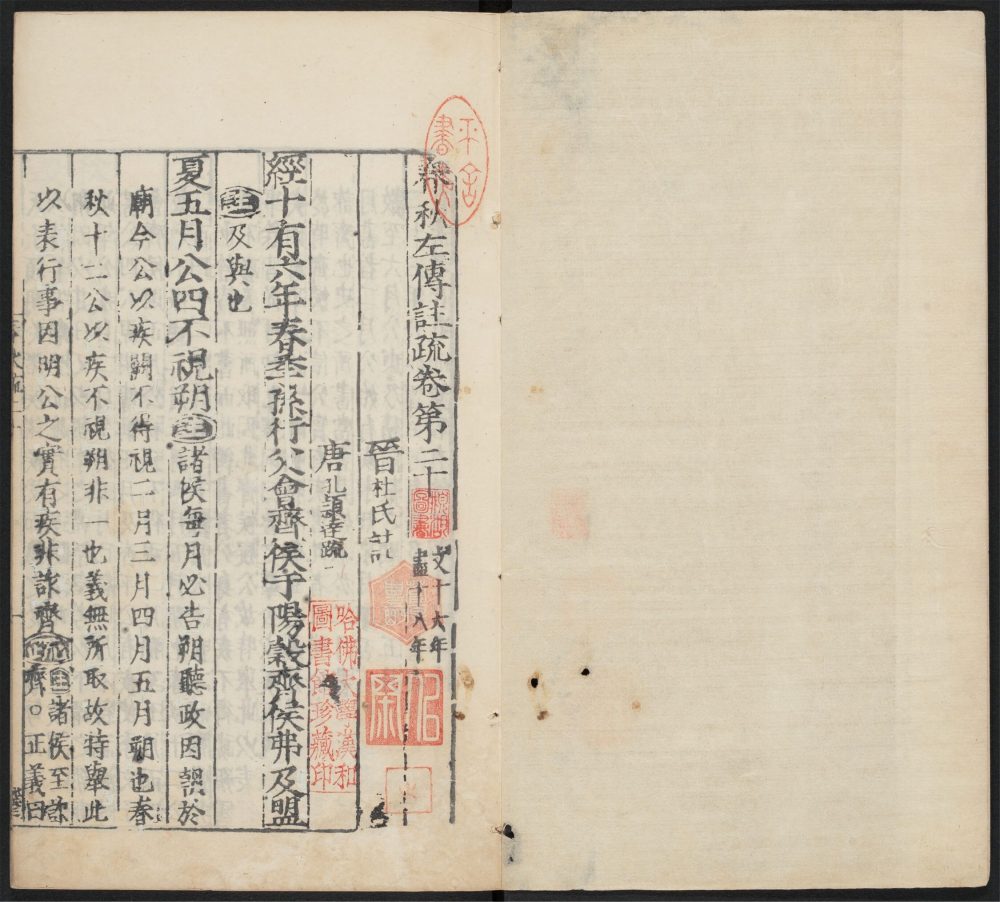 春秋左傳註疏卷第二十
文十六年
盡十八年
晉杜氏註
唐孔穎達疏
經十有六年春季孫行父會齊侯于陽穀齊侯弗及盟
註及與也
夏五月公四不視朔註諸侯每月必告朔聽政因朝於
廟今公以疾闕不得視二月三月四月五月朔也春
秋十二公以疾不視朔非一也義無所取故特舉此
以表行事因明公之實有疾非詐齊疏註諸侯至詐
齊○正義曰
哈佛大學漢和
圖書館珍藏印